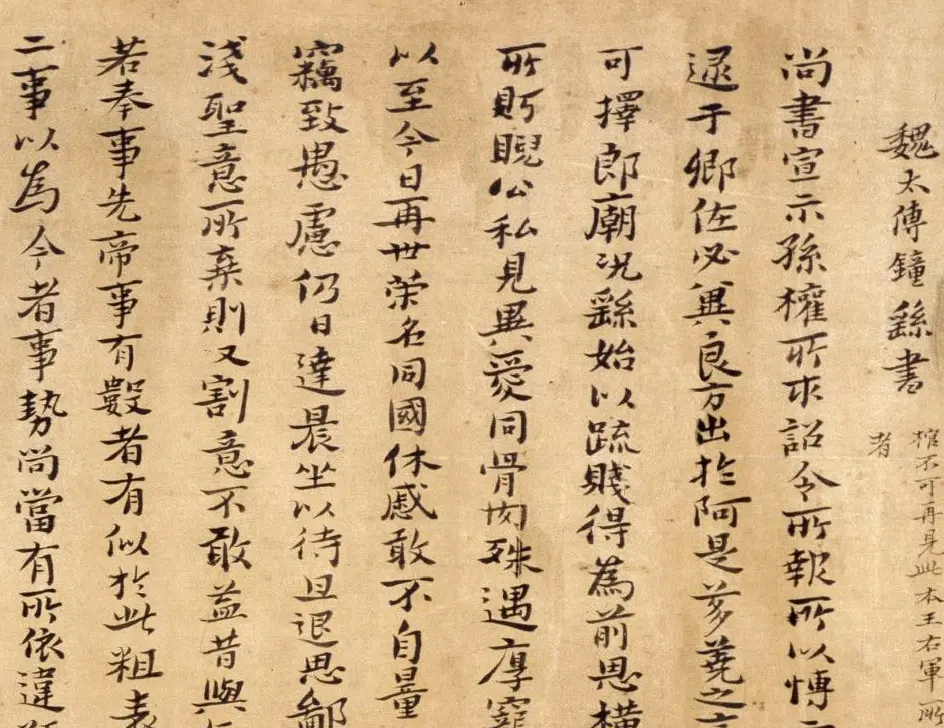 魏太傅鐘繇書
棺不可再見此本王右軍所
者
尚書宣示孫權所求詔令所報所以博
逮于卿佐必異良方出於阿是芻蕘之言
可擇郎廟況繇始以疏賤得為前恩橫
所盻睨公私見異愛同骨肉殊遇厚寵
以至今日再世榮名同國休慼敢不自量
竊致愚慮仍日達晨坐以待旦退思鄙
淺聖意所棄則又割意不敢益昔與
若奉事先帝事有數者有似於此粗表
二事以為今者事勢尚當有所依違